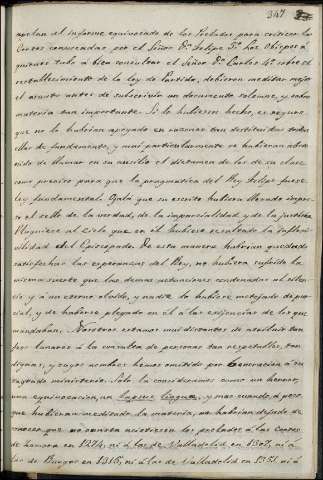 347
apelan al informe equivocado de los Prelados para criticar las
Cortes convocadas por el Señor Dn. Felipe 5º. Los Obispos á
quienes tubo á bien consultar el Señor Dn. Carlos 4º. sobre el
restablecimiento de la ley de Partida, debieron meditar mejor
el asunto antes de subscribir un documento solemne, y sobre
materia tan importante. Si lo hubiesen hecho, es seguro
que no la habrian apoyado en razones tan destituidas todas
ellas de fundamento, y mui particularmente se hubieran abste-
nido de llamar en su ausilio el dictamen de los de su clase
como preciso para que la pragmatica del Rey Felipe fuese
ley fundamental. Ojalá que su escrito hubiera llevado impre-
so el sello de la verdad, de la imparcialidad y de la justicia
Pluguiese al Cielo que en él hubiese resaltado la infali-
bilidad del Episcopado. De esta manera habrian quedado
satisfechas las esperanzas del Rey, no hubiera sufrido la
misma suerte que las demas actuaciones condenadas al silen-
cio, y á un eterno olvido, y nadie lo hubiese motejado de par-
cial, y de haberse plegado en él á las exijencias de los que
mandaban. Nosotros estamos mui distantes de atribuir tan-
tos lunares á la consulta de personas tan respetables, tan
dignas, y cuyos nombres hemos omitido por veneracion á su
sagrado ministerio. Solo la consideramos como un herror,
una equivocacion, un lapsus linguæ, y mas cuando á poco
que hubieran meditado la materia, no habrian dejado de
conocer que no asistieron los prelados á las Cortes
de Zamora en 1274, ni á las de Valladolid en 1307, ni á
las de Burgos en 1315, ni á las de Valladolid en 1351 ni á